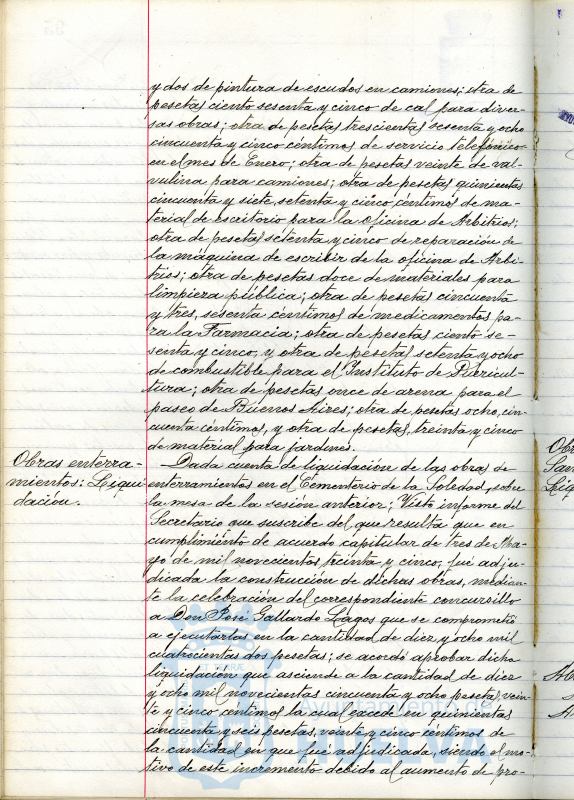 y dos de pintura de escudos en camiones; otra de
pesetas ciento sesenta y cinco de cal para diver-
sas obras; otra de pesetas trescientas sesenta y ocho
cincuenta y cinco céntimos de servicio telefónico
en el mes de Enero; otra de pesetas veinte de val-
vulina para camiones; otra de pesetas quinientas
cincuenta y siete, setenta y cinco céntimos de ma-
terial de escritorio para la oficina de Arbitrios;
otra de pesetas setenta y cinco de reparación de
la máquina de escribir de la oficina de Arbi-
trios; otra de pesetas doce de materiales para
limpieza pública; otra de pesetas cincuenta
y tres, sesenta céntimos de medicamentos pa-
ra la Farmacia; otra de pesetas ciento se-
senta y cinco, y otra de pesetas setenta y ocho
de combustible para el Instituto de Puericul-
tura; otra de pesetas once de arena para el
paseo de Buenos Aires; otra de pesetas ocho, cin-
cuenta céntimos, y otra de pesetas, treinta y cinco
de material para jardines.
Obras enterra-
mientos: Liqui-
dación.
Dada cuenta de liquidación de las obras de
enterramientos en el Cementerio de la Soledad, sobre
la mesa de la sesión anterior; Visto informe del
Secretario que suscribe del que resulta que en
cumplimiento de acuerdo capitular de tres de Ma-
yo de mil novecientos treinta y cinco, fué adju-
dicada la construcción de dichas obras, median-
te la celebración del correspondiente concursillo
a Don José Gallardo Lagos que se comprometió
a ejecutarlas en la cantidad de diez y ocho mil
cuatrocientas dos pesetas; se acordó aprobar dicha
liquidación que asciende a la cantidad de diez
y ocho mil novecientas cincuenta y ocho pesetas, vein-
te y cinco céntimos la cual excede en quinientas
cincuenta y seis pesetas, veinte y cinco céntimos de
la cantidad en que fué adjudicada, siendo el mo-
tivo de este incremento debido al aumento de pro-
Ayuntamiento de